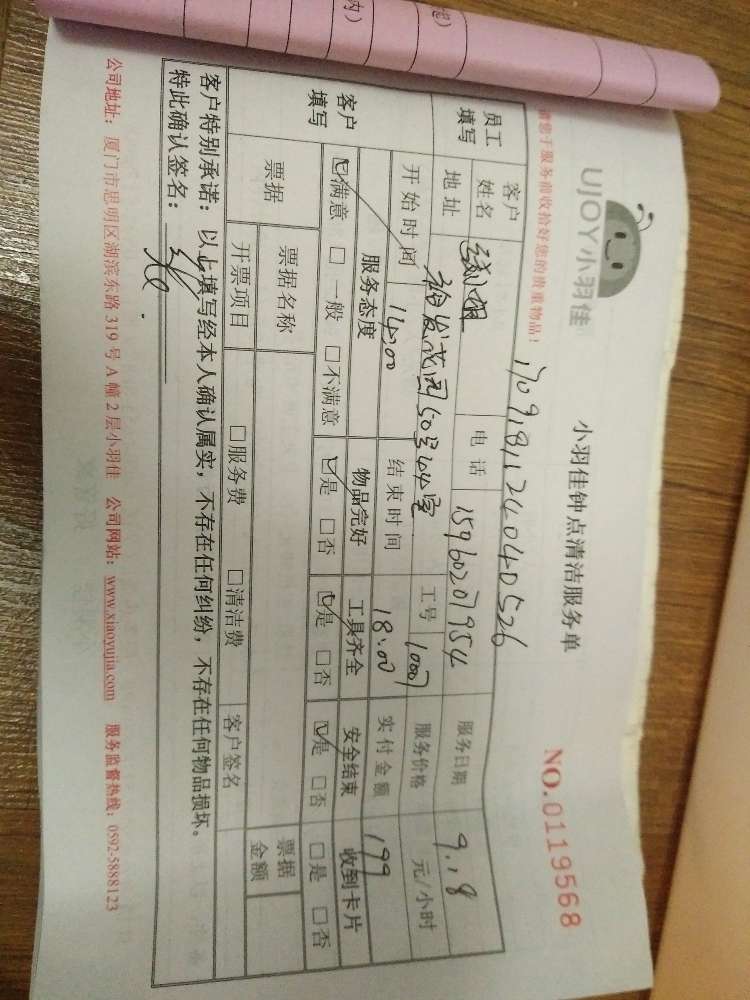 UJOY小羽佳
小羽佳钟点清洁服务单
NO.0119568
请您于服务前收拾好您的贵重物品!
1709181124040526
员工填写
客户姓名
电话 15960207954
服务日期 9.18
地址 裕发花园50号442室
工号 1007
服务价格 元/小时
开始时间 14.00
结束时间 18.00
实付金额 199
客户填写
服务态度 物品完好 工具齐全 安全结束 收到卡片
☑满意 □一般 □不满意 ☑是 □否 ☑是 □否 ☑是 □否 □是 □否
票据 票据名称 票据金额
开票项目 □服务费 □清洁费 客户签名
客户特别承诺:以上填写经本人确认属实,不存在任何纠纷,不存在任何物品损坏。
特此确认签名:
公司地址:厦门市思明区湖滨东路319号A幢2层小羽佳 公司网站:www.xiaoyujia.com 服务监督热线:0592-5888123